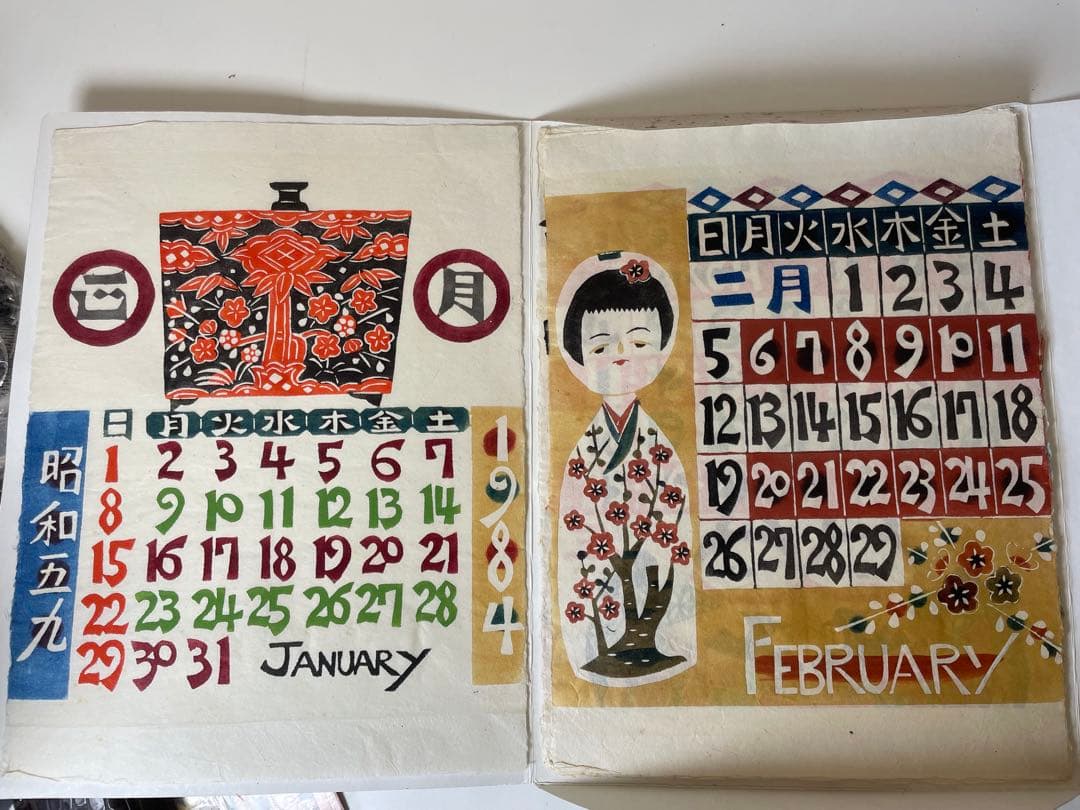 正 月
昭和五九
1984
日 月 火 水 木 金 土
1 2 3 4 5 6 7
8 9 10 11 12 13 14
15 16 17 18 19 20 21
22 23 24 25 26 27 28
29 30 31 JANUARY
日 月 火 水 木 金 土
二月 1 2 3 4
5 6 7 8 9 10 11
12 13 14 15 16 17 18
19 20 21 22 23 24 25
26 27 28 29
FEBRUARY